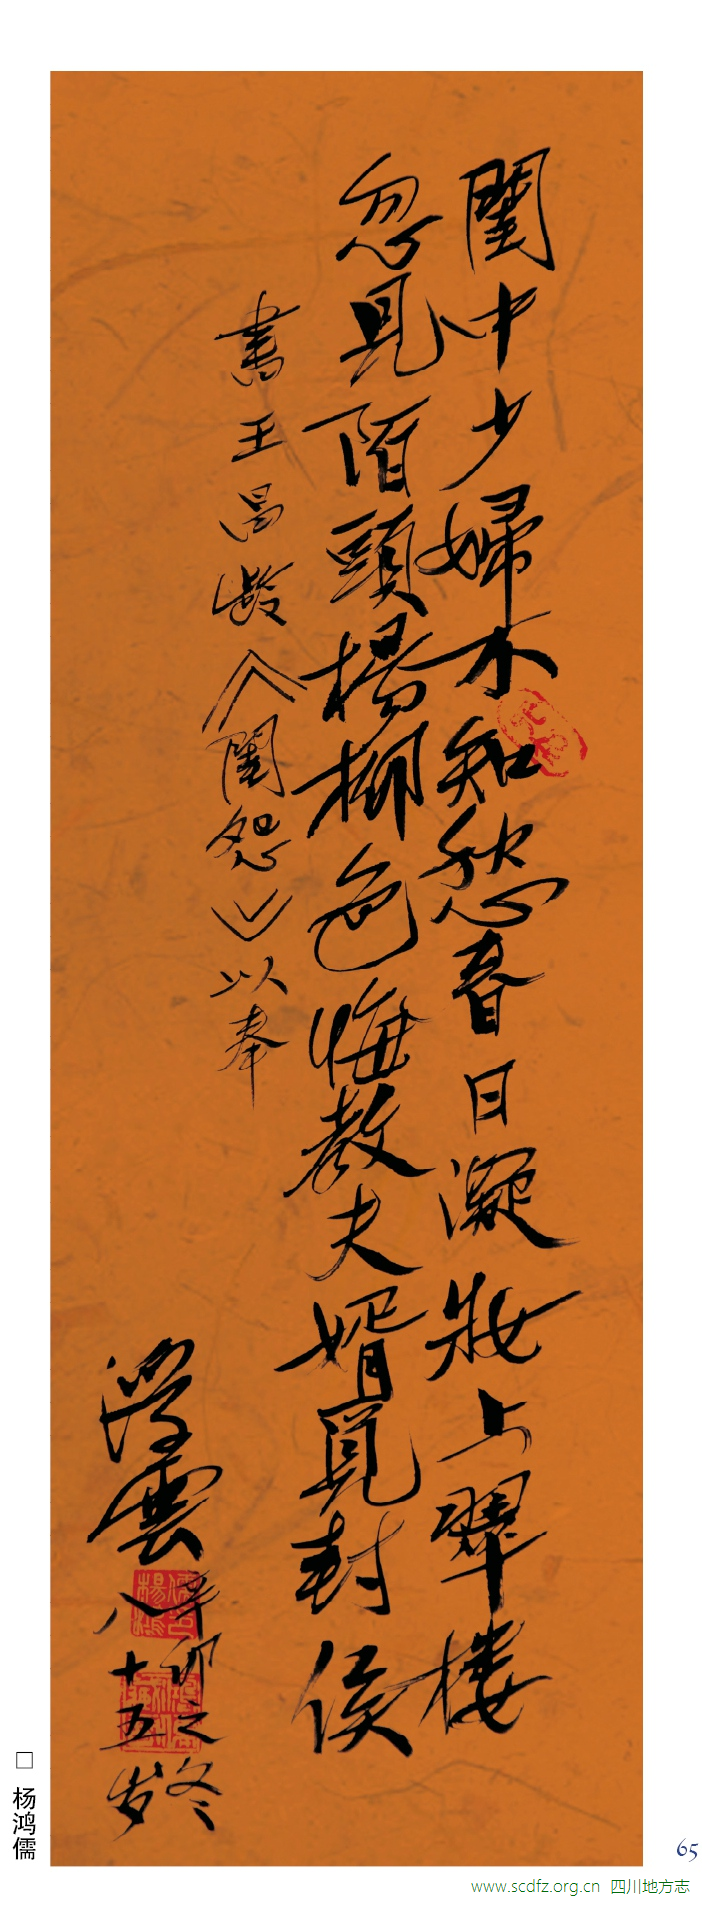 閨中少婦不知愁春日凝妝上翠樓
忽見陌頭楊柳色悔教夫婿覓封侯
書王昌齡《閨怨》以奉
浮雲
辛卯之冬
八十五岁
□ 杨鸿儒
65
www.scdfz.org.cn 四川地方志